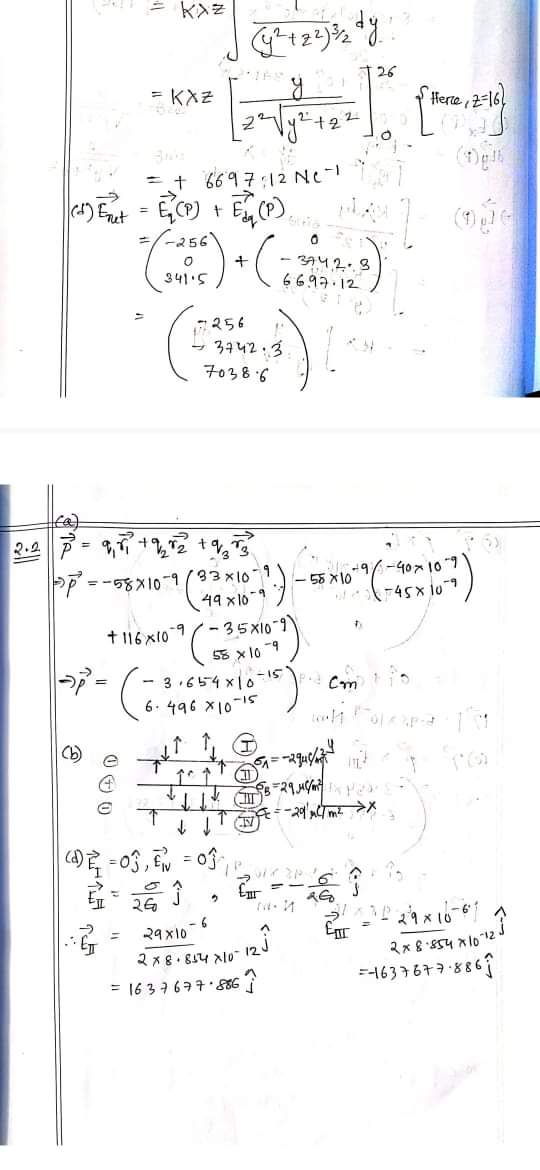 = Kλz ∫ 1/(y²+z²)^3/2 dy
= Kλz [y / z²√y²+z²]₀²⁶ [Here, z=16]
= + 6697.12 NC⁻¹
(d) E⃗net = E⃗q(P) + E⃗dq(P)
= (-256, 0, 341.5) + (0, -3742.3, 6697.12)
= (-256, -3742.3, 7038.6)
(a)
2.2 p⃗ = q₁r⃗₁ + q₂r⃗₂ + q₃r⃗₃
⇒ p⃗ = -58×10⁻⁹ (33×10⁻⁹, 49×10⁻⁹) - 58×10⁻⁹ (-40×10⁻⁹, -45×10⁻⁹)
+ 116×10⁻⁹ (-35×10⁻⁹, 58×10⁻⁹)
⇒ p⃗ = (-3.654×10⁻¹⁵, 6.496×10⁻¹⁵) Cm
(b) ⊖ I σA = -29μC/m² y
⊕ II σB = 29μC/m²
⊖ III σC = -29μC/m² x
IV
(d) E⃗I = 0ĵ, E⃗IV = 0ĵ
E⃗II = σ/2ε₀ ĵ, E⃗III = -σ/2ε₀ ĵ
∴ E⃗II = 29×10⁻⁶ / 2×8.854×10⁻¹² ĵ E⃗III = -29×10⁻⁶ / 2×8.854×10⁻¹² ĵ
= 1637677.886 ĵ = -1637677.886 ĵ